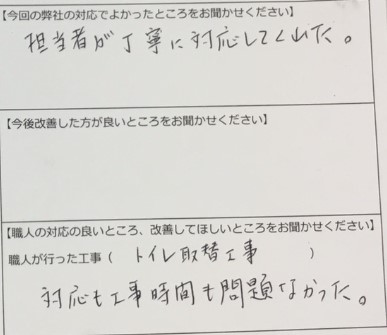 【今回の弊社の対応でよかったところをお聞かせください】
担当者が丁寧に対応してくれた。
【今後改善した方が良いところをお聞かせください】
【職人の対応の良いところ、改善してほしいところをお聞かせください】
職人が行った工事（ トイレ取替工事 ）
対応も工事時間も問題なかった。